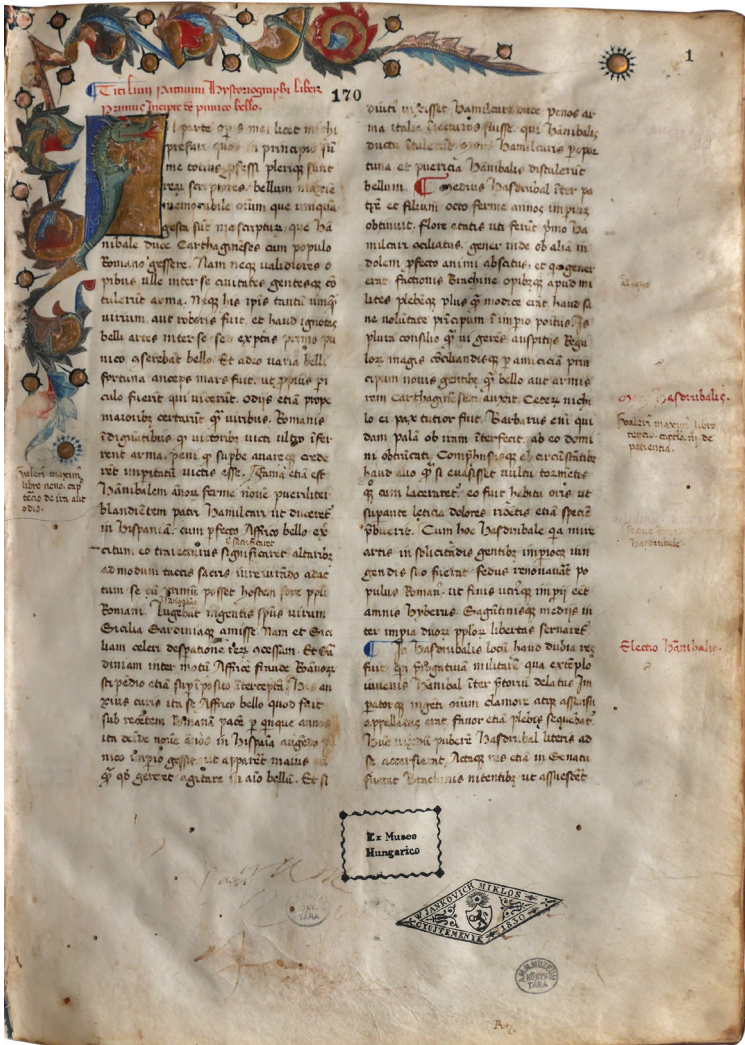 1
170
Titi liuii patauini hystoriographi liber
primus Incipit de punico bello.
In parte opis mei licet michi
presari quod in principio sũ
me totius pfessi plerique sunt
rerũ scriptores. bellum maxie
memorabile oium que unquã
gesta sũt me scripturũ. que hã
nibale duce Carthaginẽses cum populo
Romano gessere. Nam neqꝫ ualidiores o
pibus ulle inter se ciuitates gentesqꝫ cõ
tulerũt arma. Neqꝫ his ipis tantũ umqͣ
uirium aut roboris fuit. et haud ignotas
belli artes inter se sed exptas primo pu
nico cõserebãt bello. Et adeo uaria belli
fortuna anceps mars fuit. ut ppius pi
culo fuerit qui uicerũt. Odijs etiã prope
maioribꝫ certarũt qͣ uiribus. Romanis
ĩdignãtibus qͣ uictoribꝫ uicti ultro ĩfer
rent arma. peni qͣ supbe auareqꝫ crede
rẽt impitatũ uictis esse. Fama etiã est
Hãnibalem ãnoꝝ ferme nouẽ pueriliter
blandiẽtem patri Hamilcari ut duceret
in Hispaniã. cum pfecto Affrico bello ex
citum eo traiecturus significaret altaribꝫ
sacrificaret
admodum tactis sacris iureiurãdo adac
tum se cũ primũ posset hostem fore pplo
Romani. Angebãt ingentis spũs uirum
Sicilia Sardiniaqꝫ amisse. Nam et Sici
liam celeri despatione reꝝ cõcessam. Et Sar
diniam inter motũ Affrice fraude Romãoꝝ
stipẽdio etiã supĩposito ĩterceptã. His an
xius curis ita se Affrico bello quod fuit
sub recẽtem Romanã pacẽ p qinque annos
ita deĩde nouẽ ãnis in Hispaia augẽdo pu
nico ĩmpio gessit. ut apparẽt maius eũ
qͣ qd gereret agitare in aĩo bellũ. Et si
diuti uixisset Hamilcare duce penos ar
ma italia illaturos fuisse. qui Hãnibalis
ductu ĩtulerũt mors Hamilcaris popor
tuna et puericia Hãnibalis distulerũt
bellum. Medius Hasdrubal ĩter pa
trẽ et filium octo ferme annos impiuꝫ
obtinuit. Flore etatis uti ferũt pmo Ha
milcari cõciliatus. gener inde ob aliã in
dolem pfecto animi abscitus. et qa gener
erat factionis Barchine opibꝫqꝫ apud mi
lites plebẽqꝫ plus qͣ modice erãt. haud sa
ne uolũtate pricipum ĩ impio positus. Is
plura consilio qͣ ui gerẽs auspitijs Regu
loꝝ magis cõciliandisqꝫ p amiciciã prin
cipum nouis gentibꝫ qͣ bello aut armis
rem Carthaginẽsem auxit. Ceterꝫ nichi
lo ei pax tutior fuit. Barbarus eni qui
dam palã ob iram ĩterfecit ab eo domi
ni obtrũcati. Comphensusqꝫ ab circũstãtibꝫ
haud alio qͣ si euasisset uultu tormẽtis
qꝫ cum laceraretꝛ. eo fuit habitu oris ut
supante leticia dolores ridẽtis etiã speciẽ
pbuerit. Cum hoc Hasdrubale qa mire
artis in solicitãdis gentibꝫ impioqꝫ iun
gendis suo fuerat. fedus renouauãt po
pulus Romanꝰ. ut finis utriqꝫ impij eẽt
amnis Hyberus. Sagũtinisqꝫ medijs in
ter impia duoꝝ pploꝝ libertas seruaret.
In Hasdrubalis locũ haud dubia res
fuit qn prerogatiuã militarẽ qua extẽplo
iuuenis Hanibal ĩter ptoriũ delatus Im
patorqꝫ ingẽti oium clamore atqꝫ assensu
appellatus erat fauor etiã plebis sequebat
Hũc uixdũ puberẽ Hasdrubal literis ad
se accersiuerat. Actaqꝫ res etiã in Senatu
fuerat Barchinis nitentibꝫ ut assuesceret
Valeri maximꝰ
libro nono. cap
tercio de ira aut
odio.
Hasdrubalis.
Valeri maximi libro
tercio. capitlo. iij. de
patiencia.
Fedus
Hasdrubale.
Electio Hãnibalis.
Ex Museo
Hungarico
W. JANKOVICH MIKLOS
GYÜJTEMÉNYE 1830
M. N. MUZEUM
KÖNYV
TÁRA